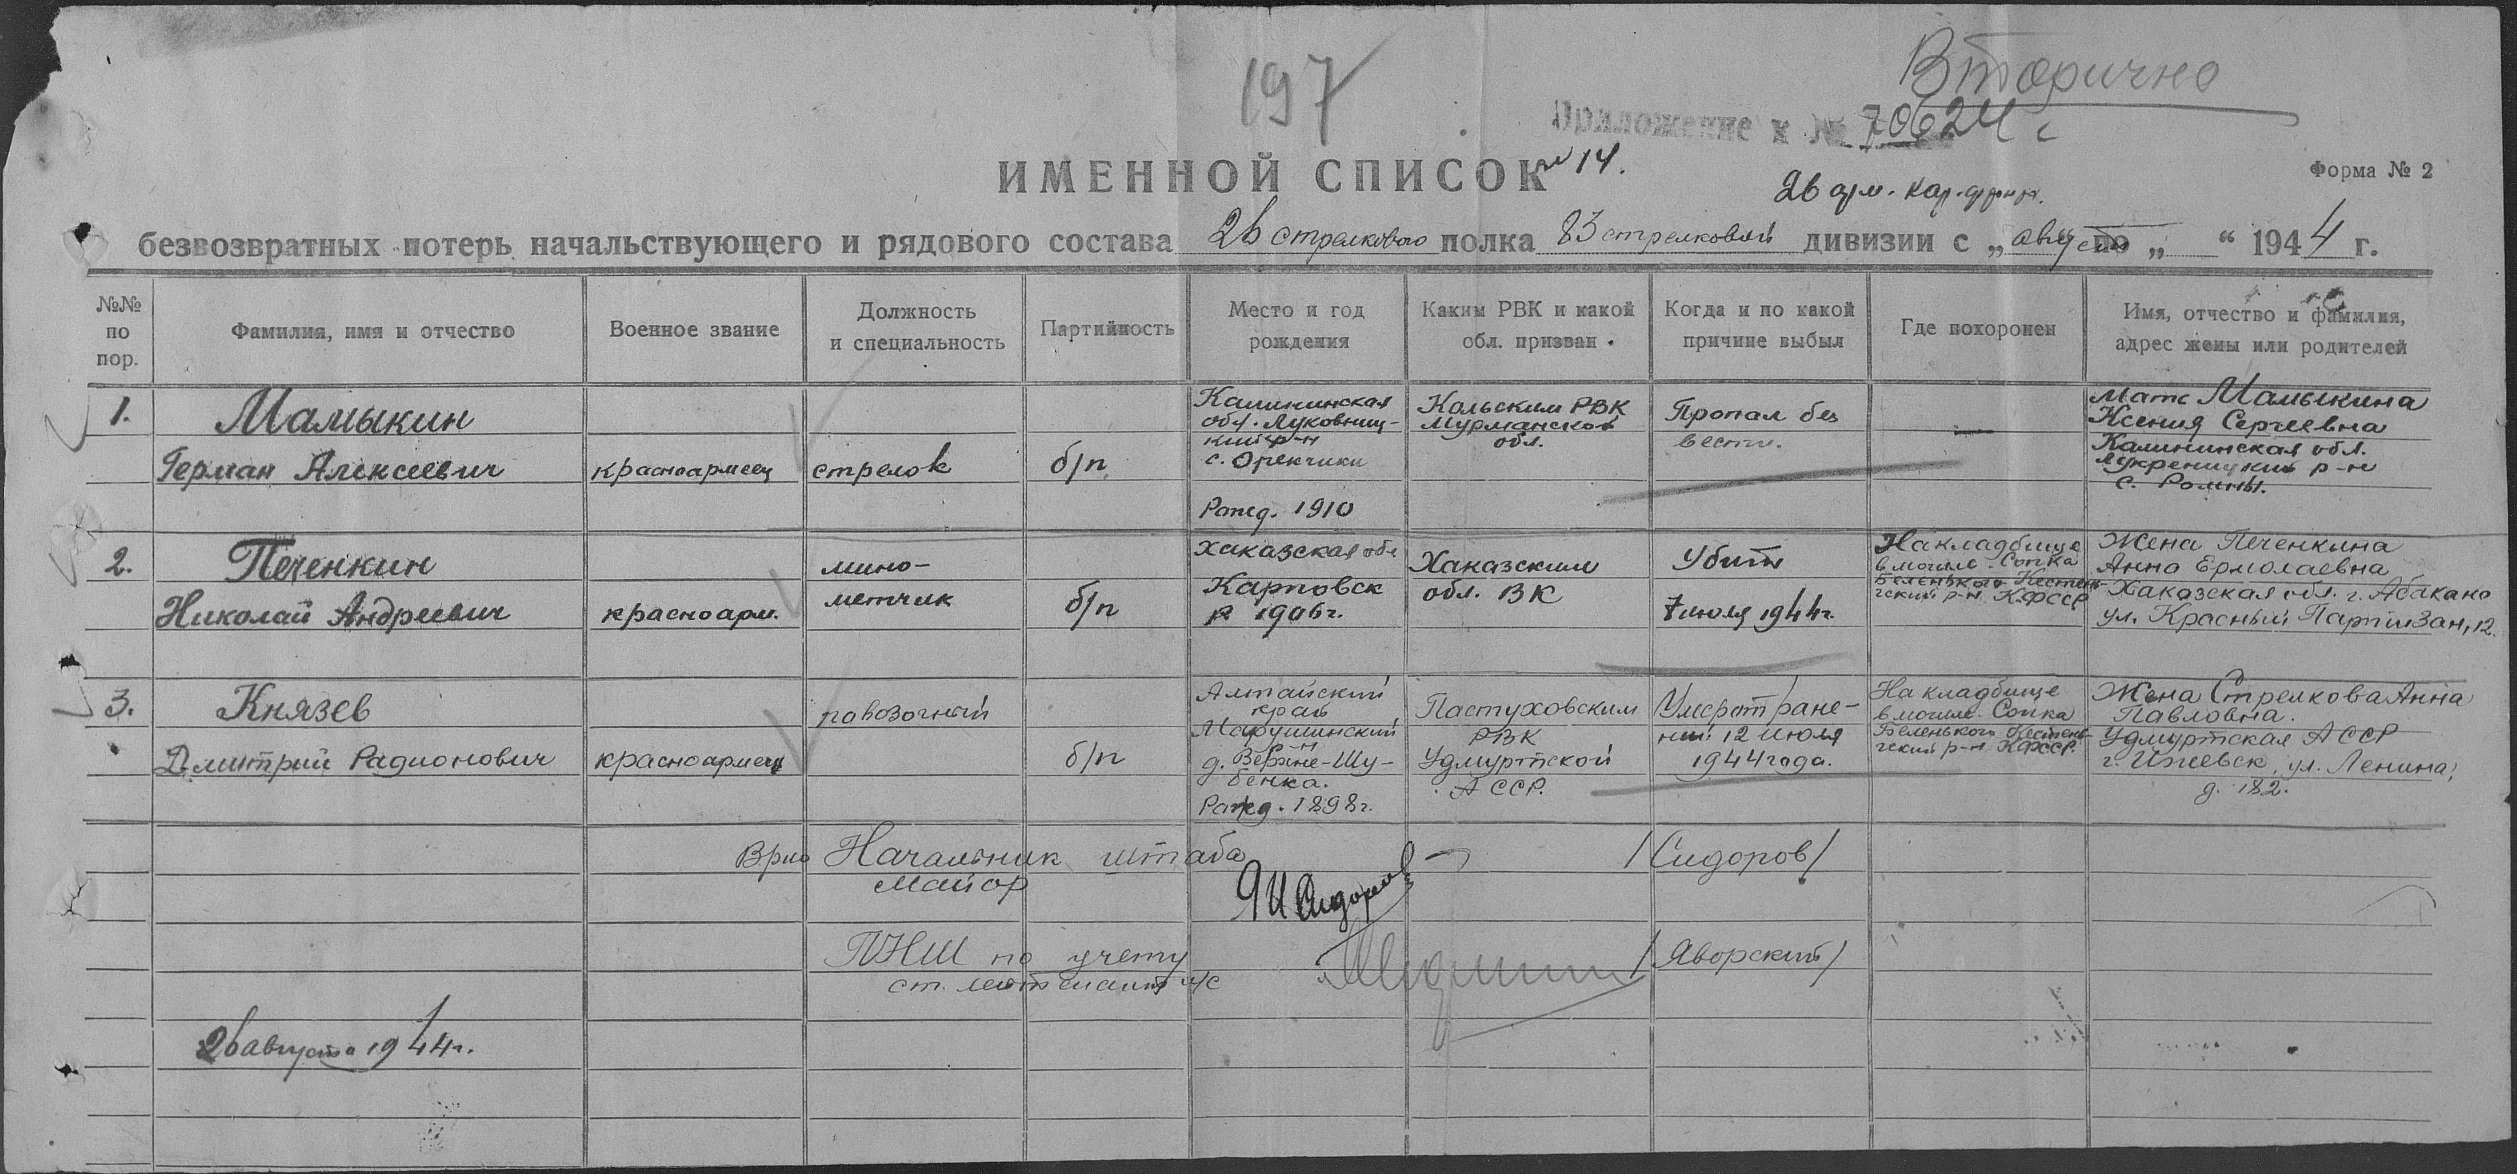 197
Вторично
Приложение к № 70624 с
ИМЕННОЙ СПИСОК № 14.
Форма № 2
26 арм. Кар. фронт.
безвозвратных потерь начальствующего и рядового состава 26 стрелкового полка 83 стрелковой дивизии с „август“ по „ “ 1944 г.
№№ по пор.
Фамилия, имя и отчество
Военное звание
Должность и специальность
Партийность
Место и год рождения
Каким РВК и какой обл. призван
Когда и по какой причине выбыл
Где похоронен
Имя, отчество и фамилия, адрес жены или родителей
1.
Мамыкин
Герман Алексеевич
красноармеец
стрелок
б/п
Калининская
обл. Луковниц-
кий р-н
с.
Рожд. 1910
Кольским РВК
Мурманской
обл.
Пропал без
вести.
—
Мать Мамыкина
Ксения Сергеевна
Калининская обл.
р-н
с.
2.
Печенкин
Николай Андреевич
красноарм.
мино-
метчик
б/п
Хакасская обл
Карповск
Р 1906г.
Хакасским
обл. ВК
Убит
7 июля 1944г.
На кладбище
в могиле. Сопка
Беленького Кестень-
гский р-н КФССР
Жена Печенкина
Анна Ермолаевна
Хакасская обл. г. Абакано
ул. Красный Партизан, 12.
3.
Князев
Дмитрий Радионович
красноармеец
повозочный
б/п
Алтайский
край
Марушинский
р-н
д. Верхне-Шу-
бенка.
Рожд. 1898г.
Пастуховским
РВК
Удмуртской
АССР.
Умер от ране-
ний 12 июля
1944 года.
На кладбище
в могиле. Сопка
Беленького Кестень-
гский р-н КФССР.
Жена Стрелкова Анна
Павловна.
Удмуртская АССР
г. Ижевск, ул. Ленина,
д. 182.
Врио Начальник штаба
майор
Сидоров
/Сидоров/
ПНШ по учету
ст. лейтенант и/с
/Яворский/
26 августа 1944г.